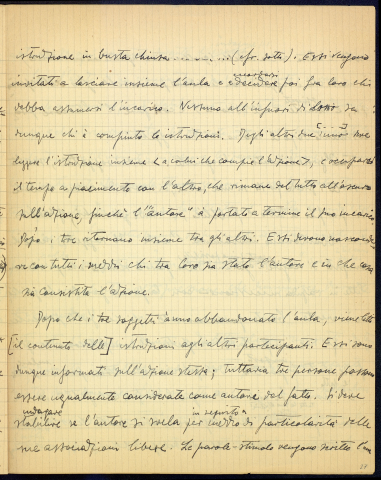 istruzione in busta chiusa .......... (cfr. sotto). Essi vengono
invitati a lasciare insieme l'aula e decidere poi fra loro chi
accordarsi
debba assumersi l'incarico. Nessuno all'infuori di loro sa
dunque chi à compiuto le istruzioni. Degli altri due [uno]
legge l'istruzione insieme a colui che compie l'azione, e
il tempo con l'altro, che rimane del tutto all'oscuro
sull'azione, finché l'"autore" à portato a termine il suo incarico.
Dopo i tre ritornano insieme tra gli altri. Essi devono nasconde
re con tutti i mezzi chi tra loro sia stato l'autore e in che cosa
sia consistita l'azione.
Dopo che i tre soggetti ànno abbandonato l'aula, viene letto
[il contenuto delle] istruzioni agli altri partecipanti. Essi sono
dunque informati sull'azione stessa; tuttavia tre persone possono
essere ugualmente considerate come autore del fatto. Si deve
indagare in seguito a
stabilire se l'autore si svela per mezzo di particolarità delle
sue associazioni libere. Le parole-stimolo vengono scelte